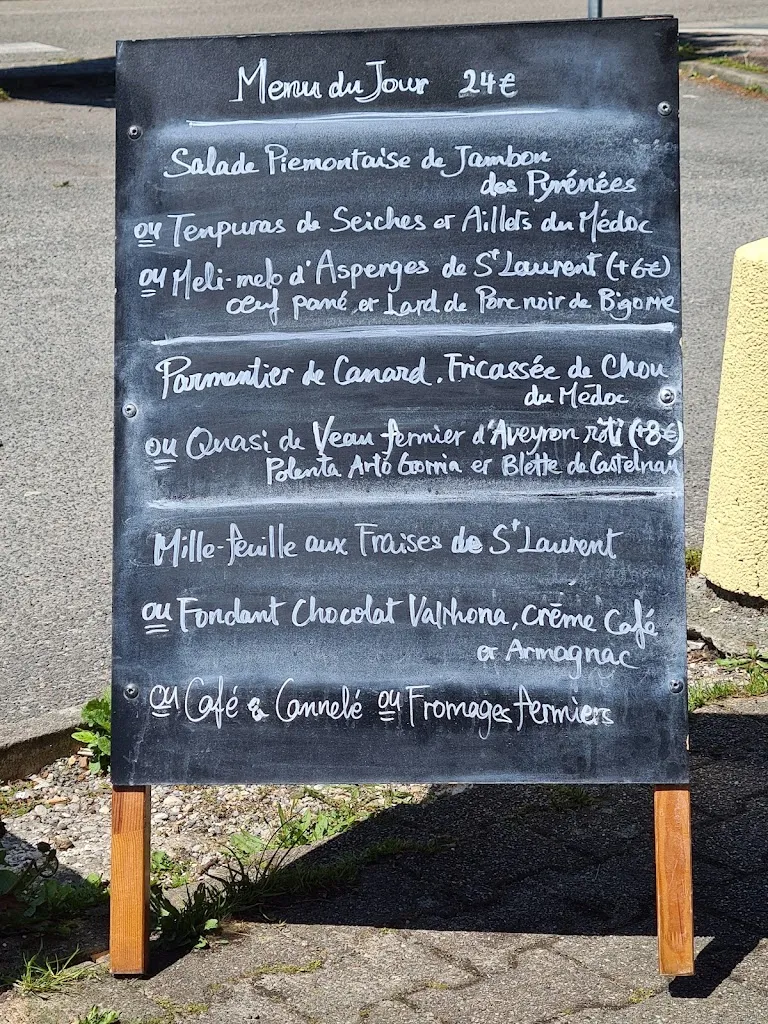 Menu du Jour 24€
Salade Piemontaise de Jambon
des Pyrénées
ou Tempuras de Seiches et Aillets du Médoc
ou Meli-melo d'Asperges de St Laurent (+6€)
œuf pané, et Lard de Porc noir de Bigorre
Parmentier de Canard, Fricassée de Chou
du Médoc
ou Quasi de Veau fermier d'Aveyron rôti (+8€)
Polenta Arto Gorria et Blette de Castelnau
Mille-feuille aux Fraises de St Laurent
ou Fondant Chocolat Valrhona, crème Café
et Armagnac
ou Café & Cannelé ou Fromages fermiers